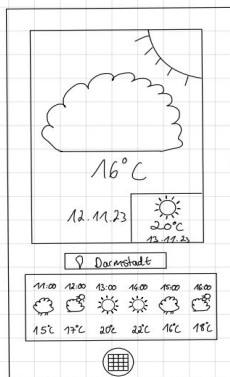 16°C
12.11.23
20°C
13.11.23
Darmstadt
11:00 12:00 13:00 14:00 15:00 16:00
15°C 17°C 20°C 22°C 16°C 18°C